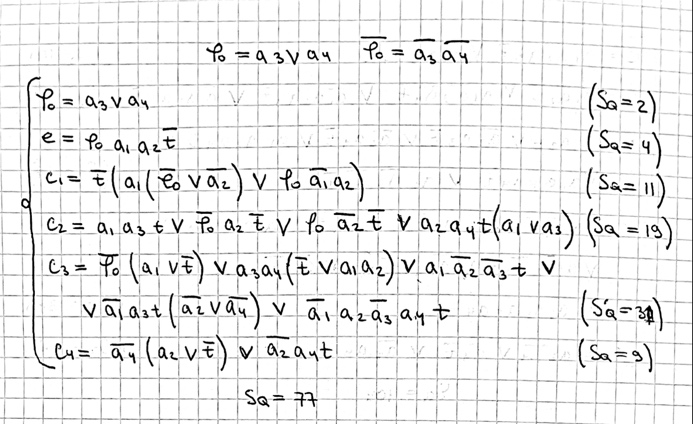 φ₀ = a₃ ∨ a₄  φ̅₀ = a̅₃ a̅₄
φ₀ = a₃ ∨ a₄ (SQ = 2)
e = φ₀ a₁ a₂ t̅ (SQ = 4)
c₁ = t̅ (a₁ (φ̅₀ ∨ a̅₂) ∨ φ₀ a̅₁ a₂) (SQ = 11)
c₂ = a₁ a₃ t ∨ φ̅₀ a₂ t̅ ∨ φ₀ a̅₂ t̅ ∨ a₂ a₄ t (a₁ ∨ a₃) (SQ = 19)
c₃ = φ̅₀ (a₁ ∨ t̅) ∨ a₃ a₄ (t̅ ∨ a₁ a₂) ∨ a₁ a̅₂ a̅₃ t ∨
∨ a̅₁ a₃ t (a̅₂ ∨ a̅₄) ∨ a̅₁ a₂ a̅₃ a₄ t (SQ = 31)
c₄ = a̅₄ (a₂ ∨ t̅) ∨ a̅₂ a₄ t (SQ = 9)
SQ = 77